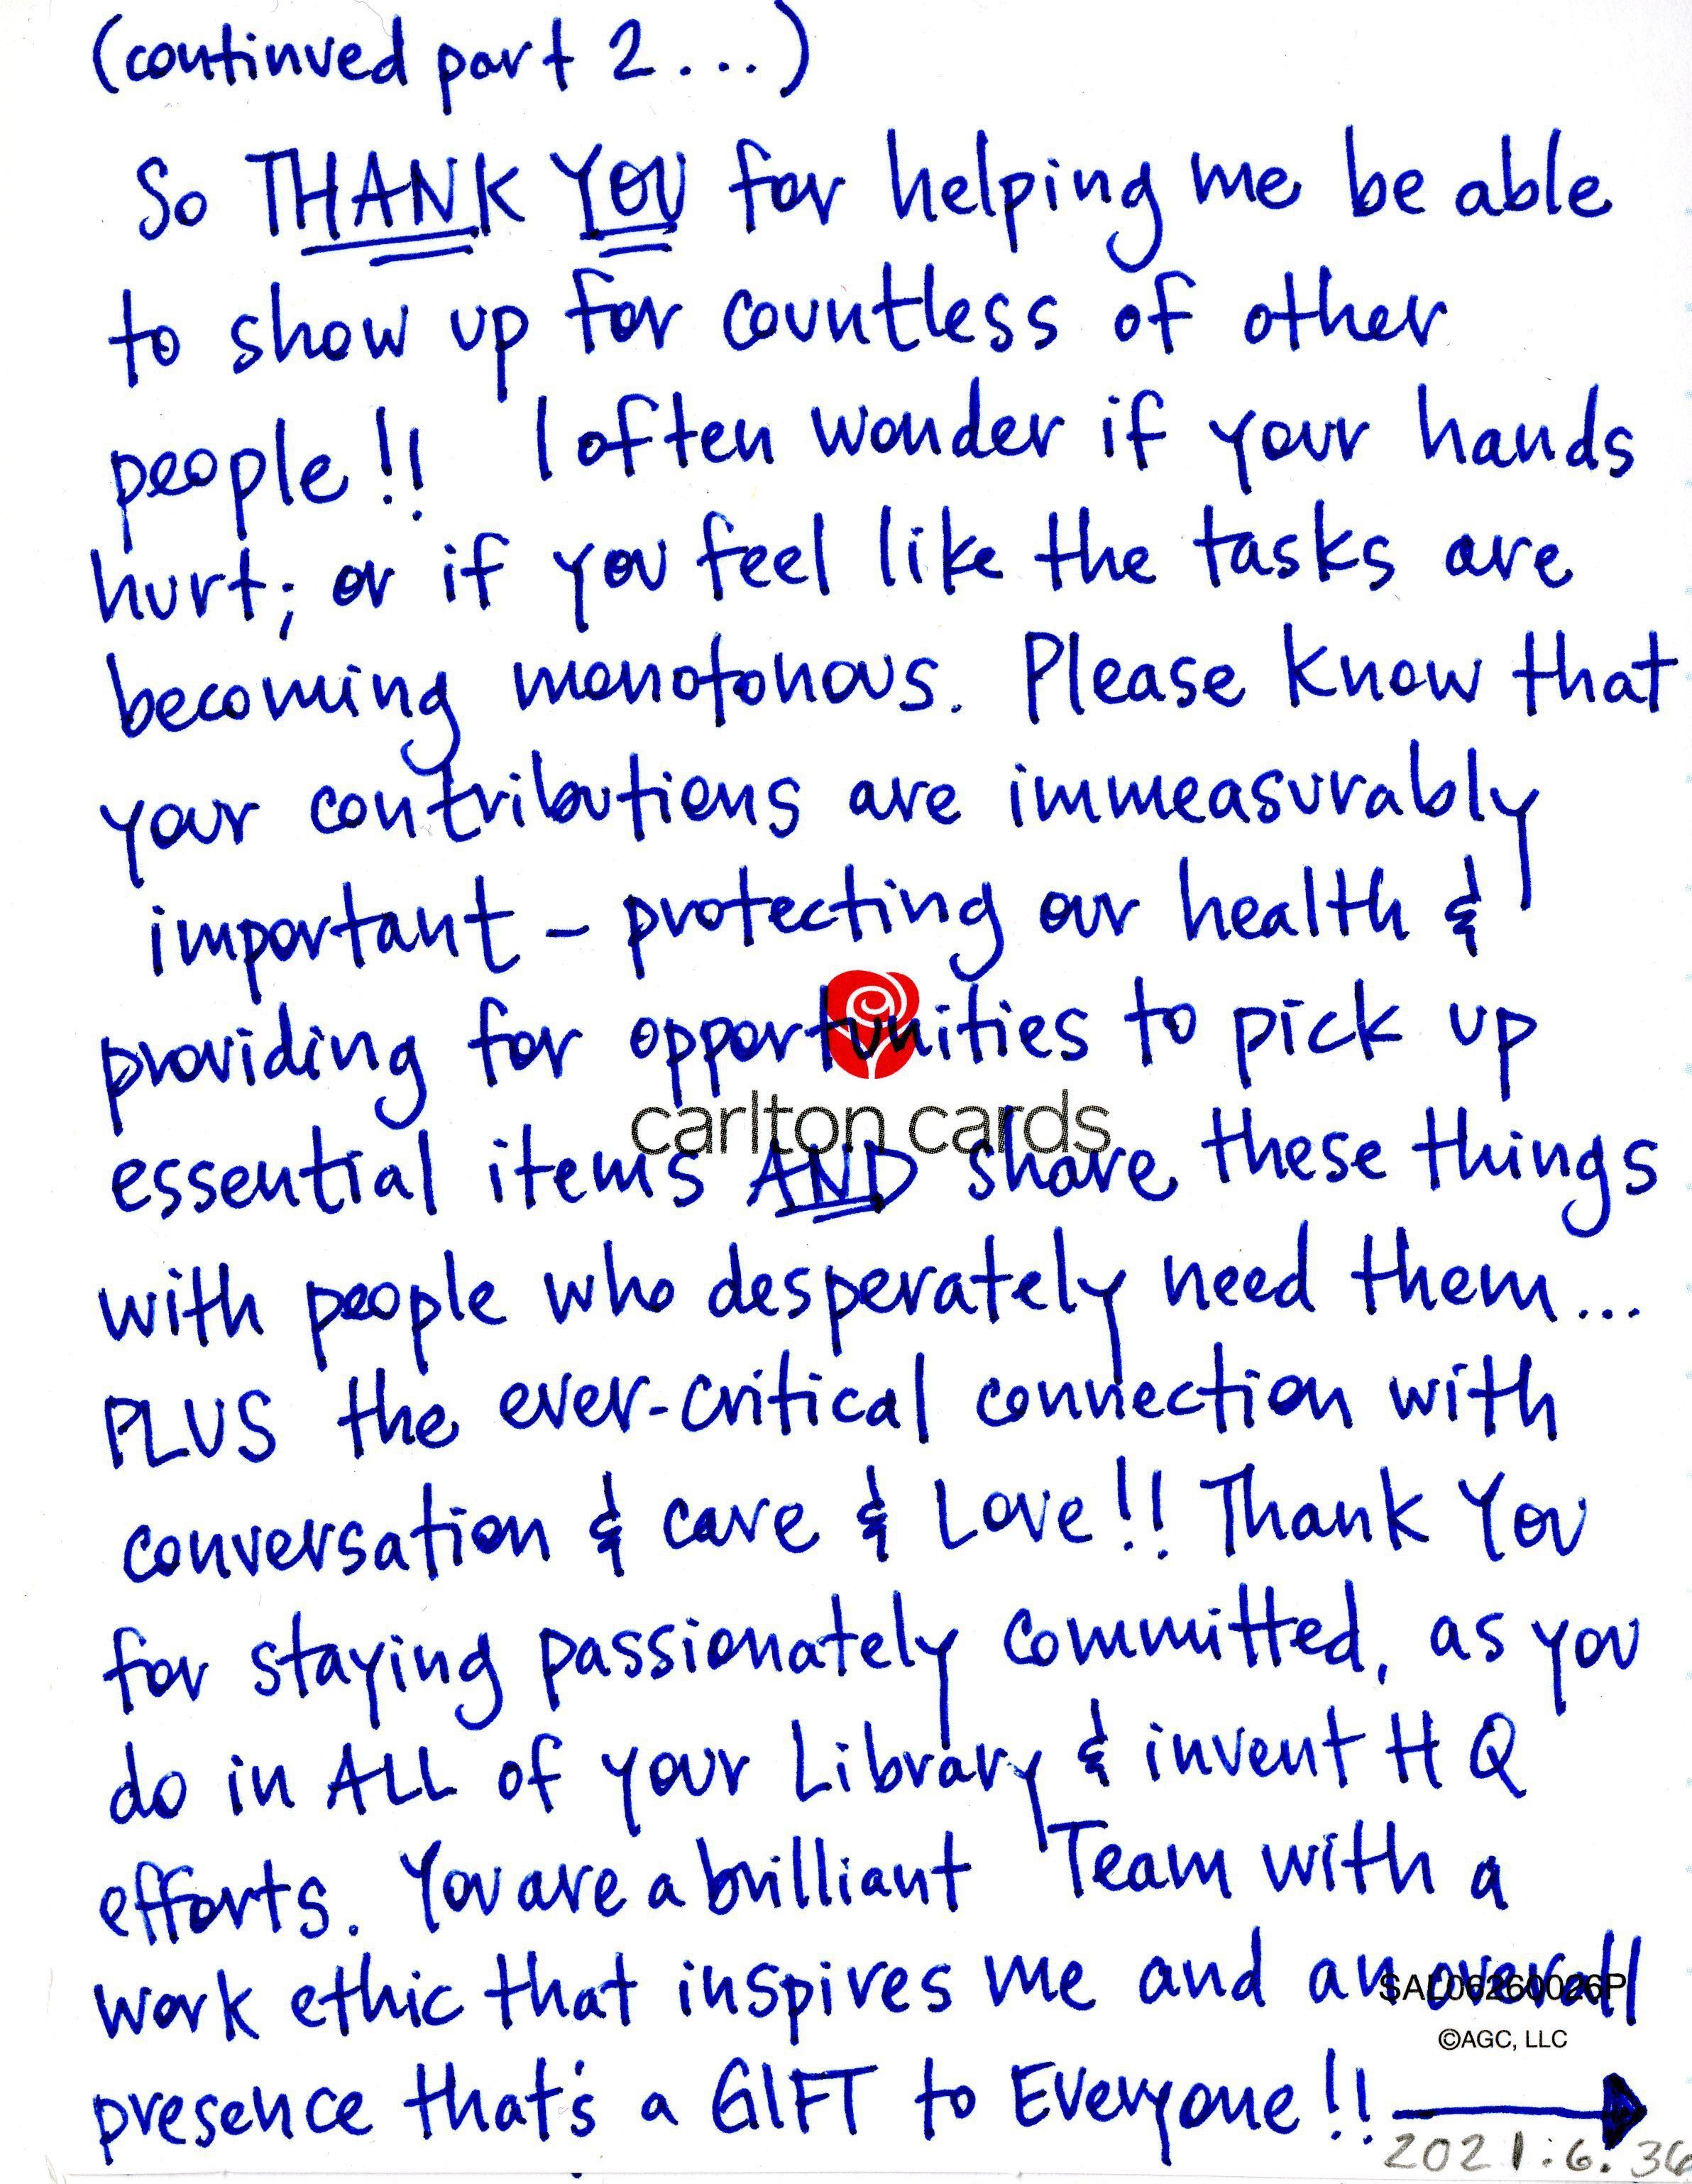 (continued part 2...)
So THANK YOU for helping me be able
to show up for countless of other
people!! I often wonder if your hands
hurt; or if you feel like the tasks are
becoming monotonous. Please know that
your contributions are immeasurably
important - protecting our health &
providing for opportunities to pick up
carlton cards
essential items AND share these things
with people who desperately need them...
PLUS the ever-critical connection with
conversation & care & Love!! Thank You
for staying passionately committed, as you
do in ALL of your Library & invent HQ
efforts. You are a brilliant Team with a
work ethic that inspires me and an overall
SAL06260026P
©AGC, LLC
presence that's a GIFT to Everyone!!
2021.6.36